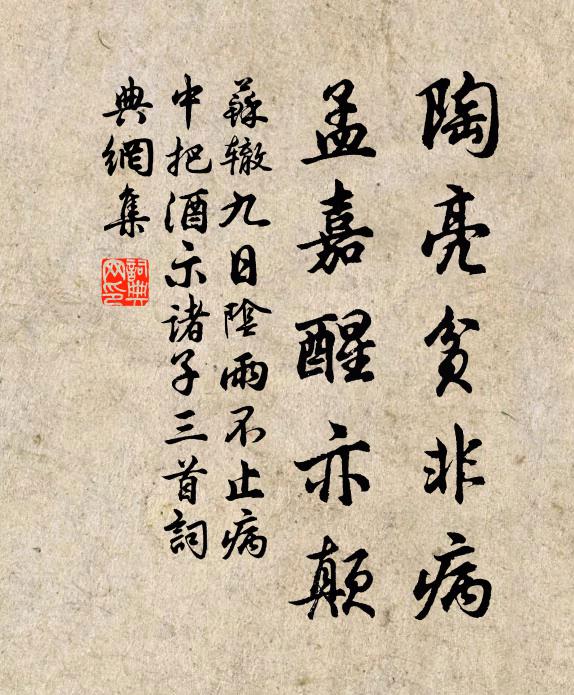 陶亮貧非病
孟嘉醒亦顛
蘇辙九日陰雨不止病
中把酒示諸子三首詞
典網集
詞典网印